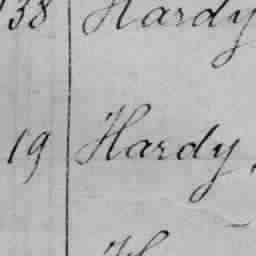 38 Hardy
19 Hardy,